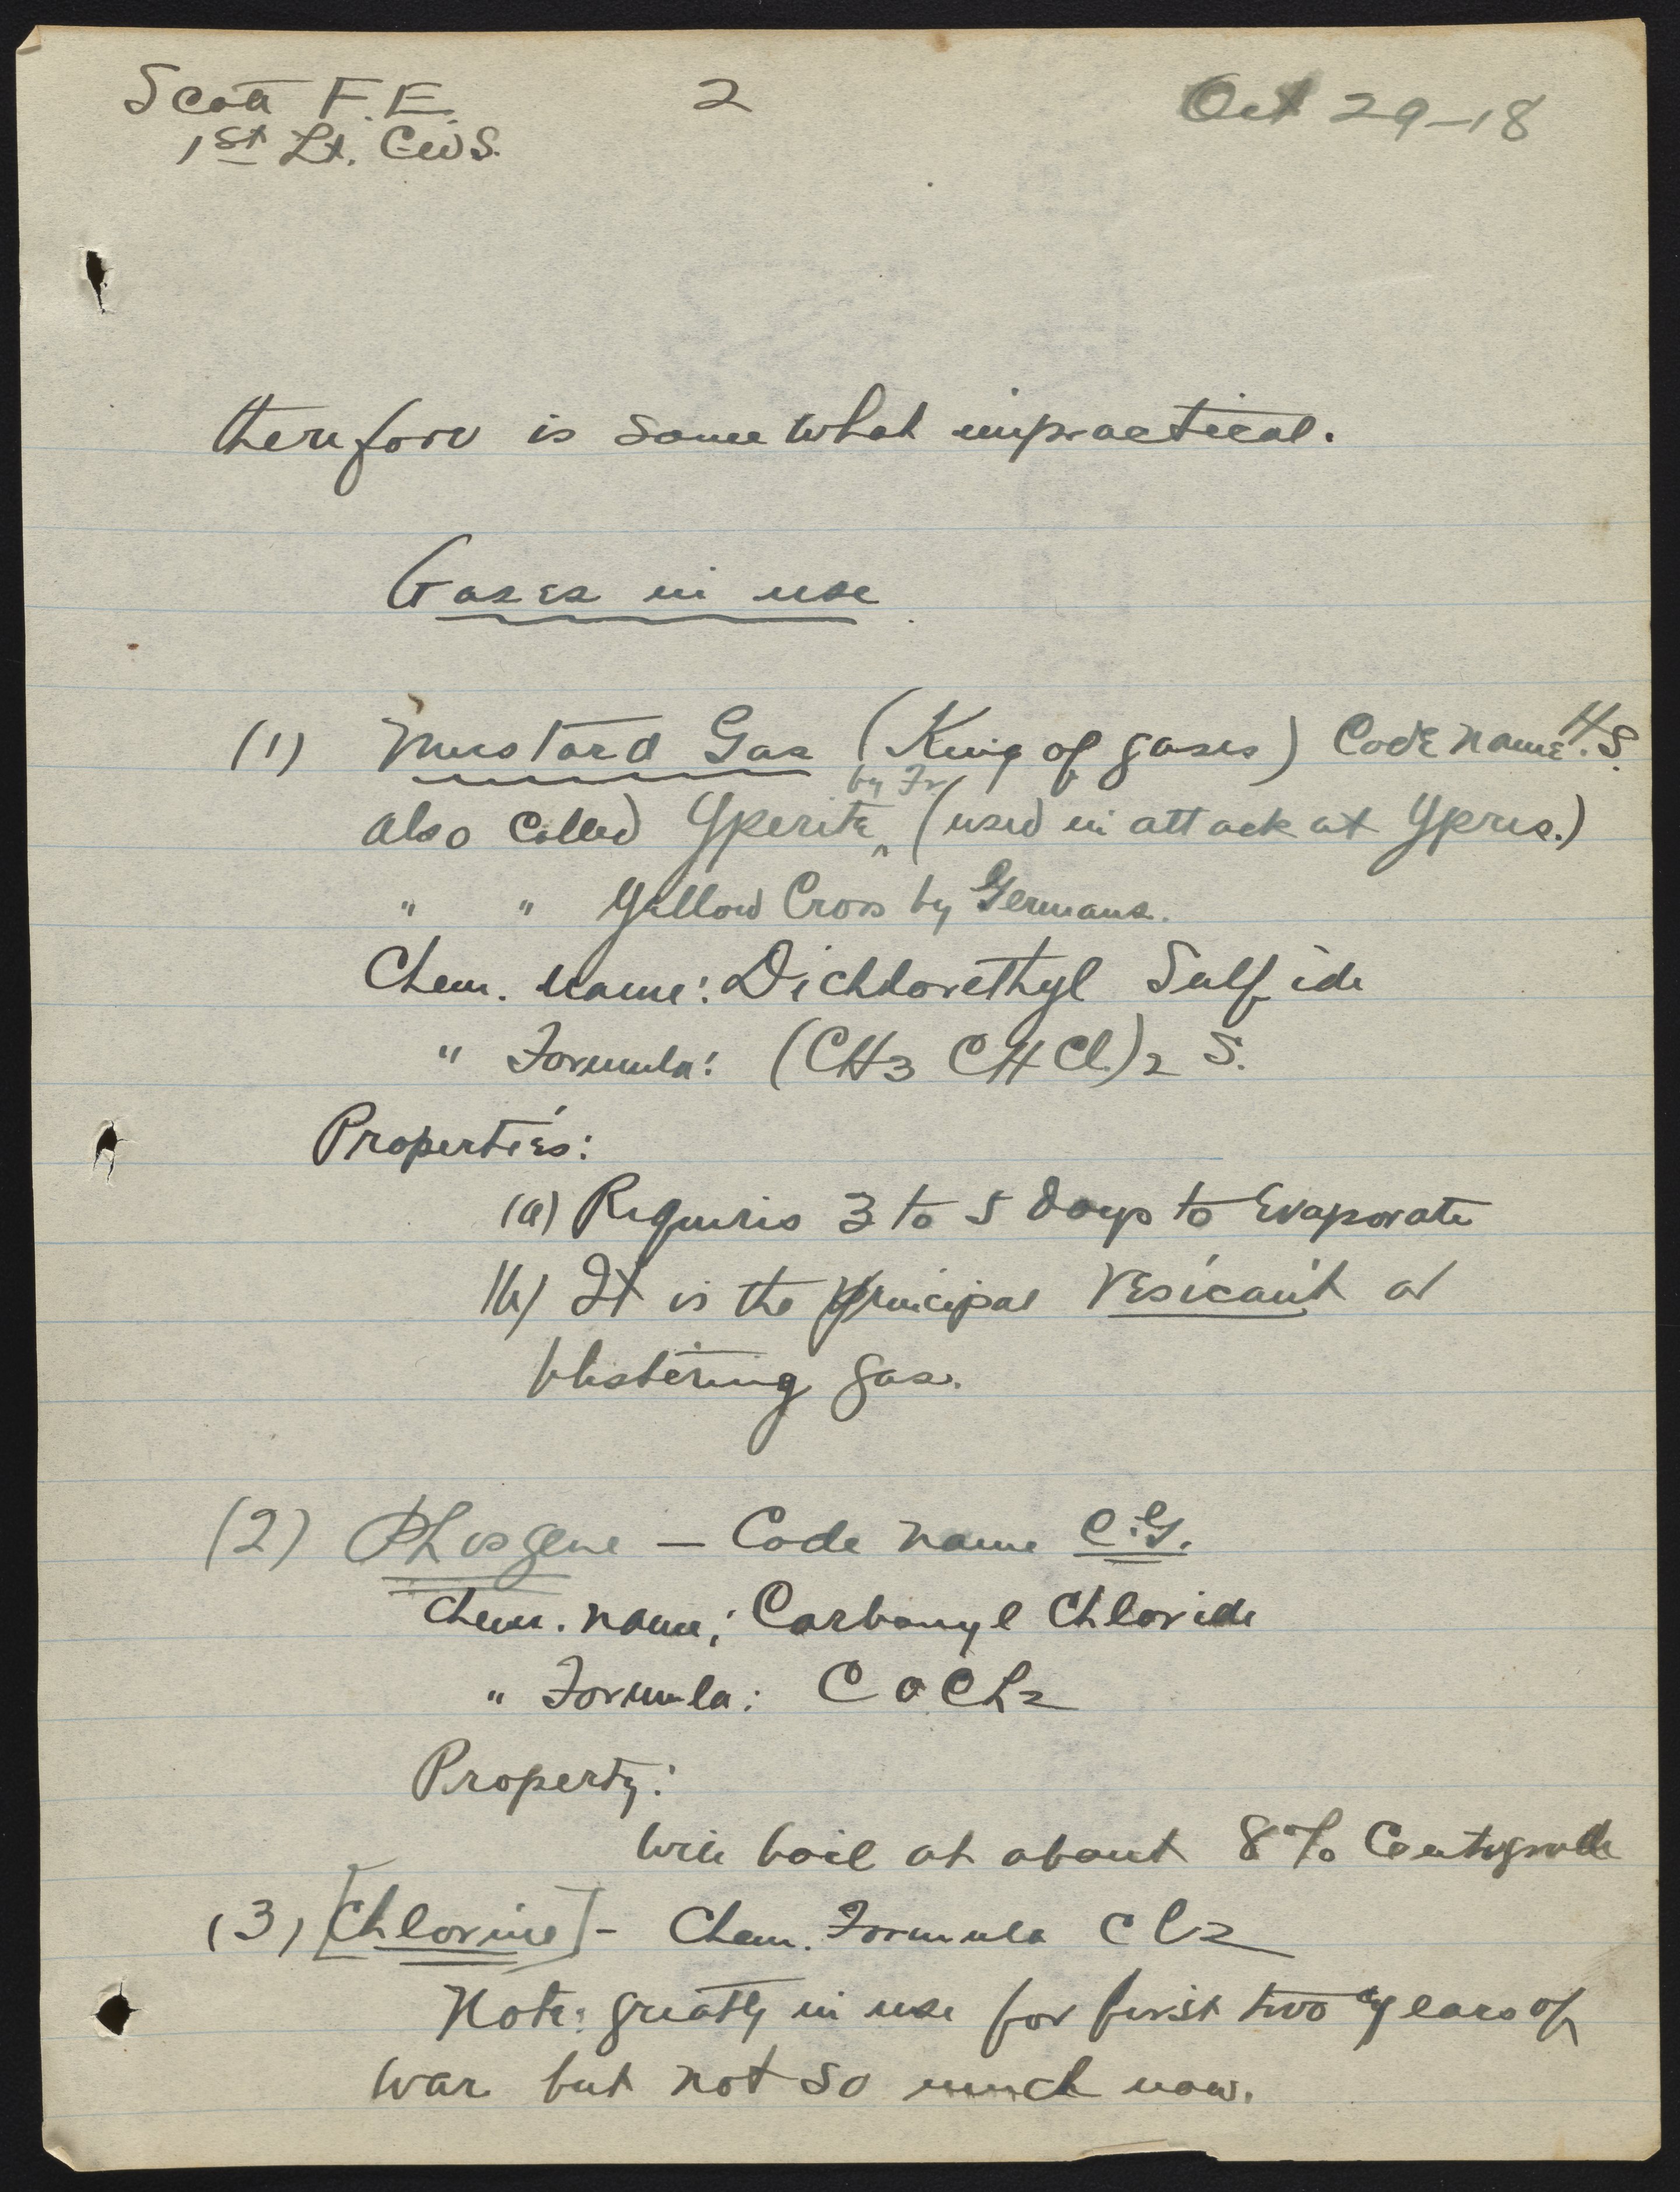 Scott F.E. 2 Oct 29-18
1st Lt. C.W.S.
therefore is somewhat impractical.
Gases in use
(1) Mustard Gas (King of gases) Code name H.S.
by Fr
also called Yperite ^ (used in attack at Ypres.)
" " Yellow Cross by Germans.
Chem. Name: Dichlorethyl Sulfide
" Formula: (CH3 CH Cl)2 S.
Properties:
(a) Requires 3 to 5 days to Evaporate
(b) It is the principal Vesicant or
blistering gas.
(2) Phosgene — Code name C.G.
Chem. name; Carbonyl Chloride
" Formula: COCl2
Property:
Will boil at about 8% Centigrade
(3) [Chlorine] - Chem. Formula Cl2
Note: greatly in use for first two years of
war but not so much now.